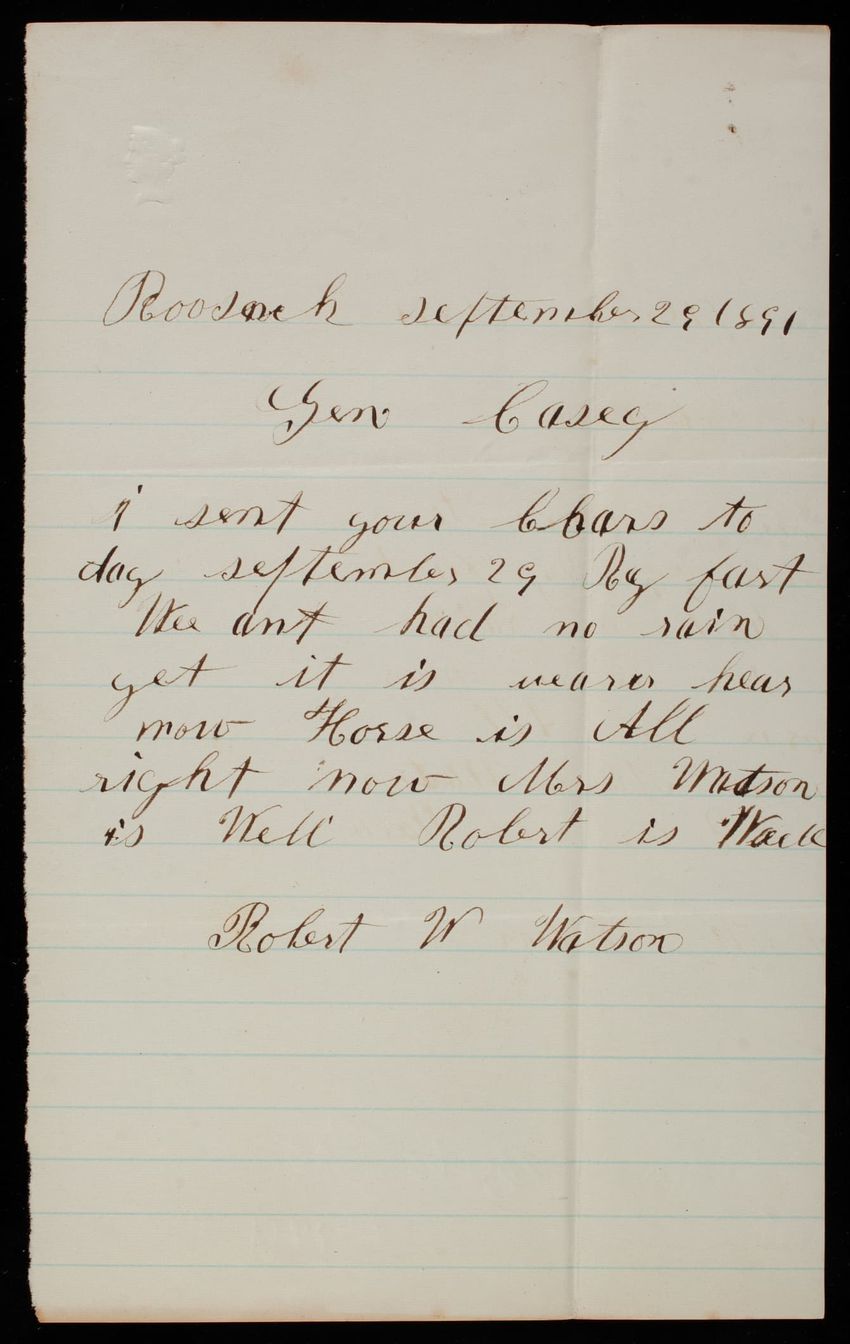 september 29 1891
Gen Casey
i sent your to
day september 29 By fast
Wee ant had no rain
yet it is hear
now Horse is All
right now Mrs Watson
is Well Robert is Waell
Robert W Watson